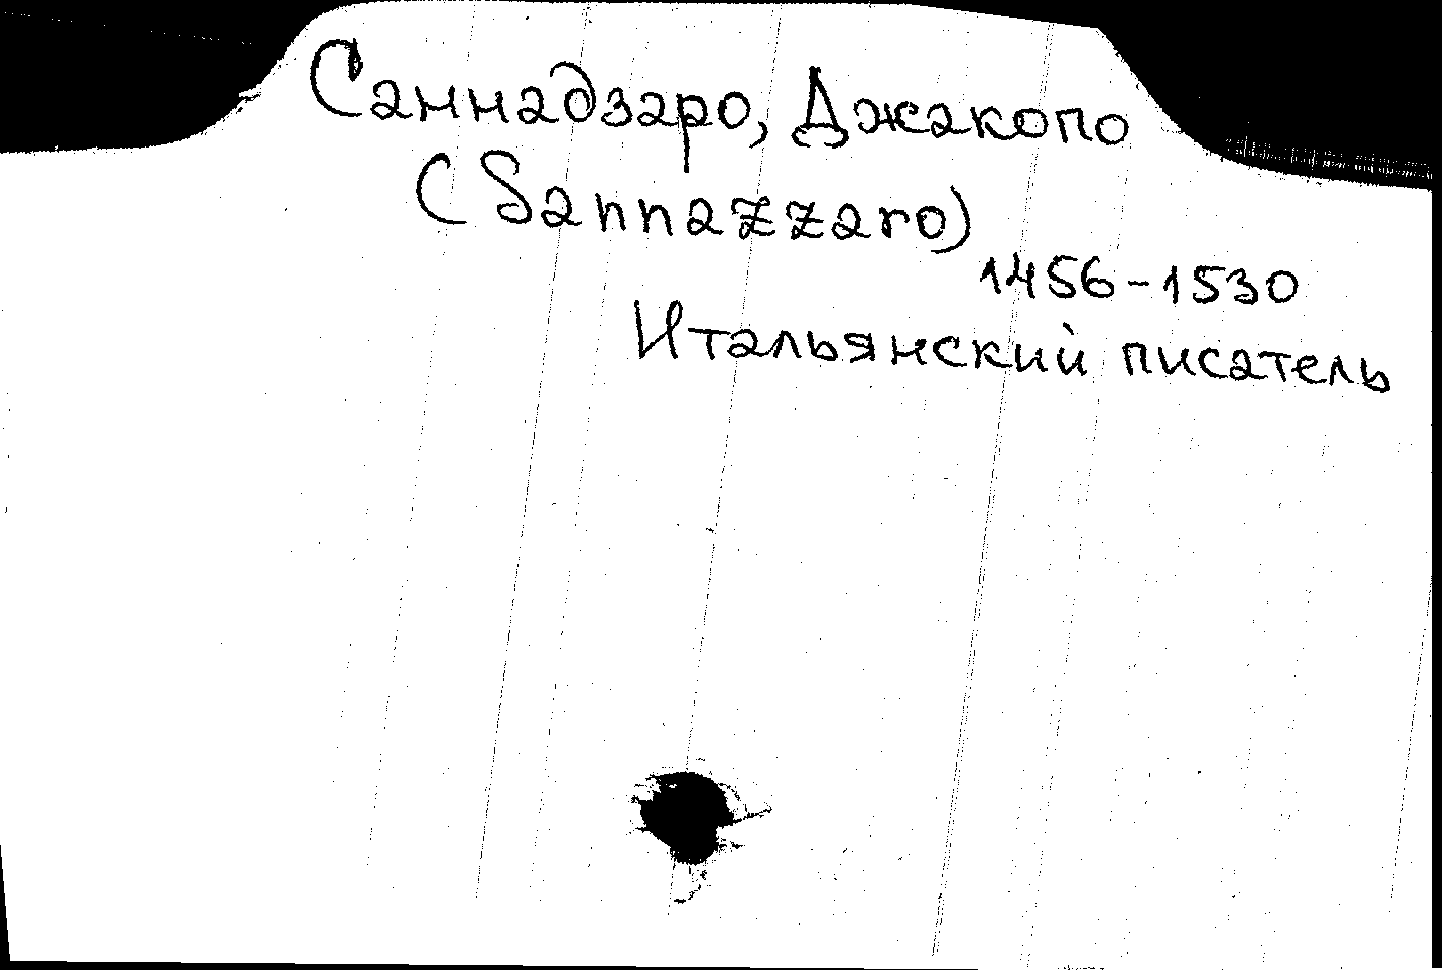 Саннадзаро, Джакопо
(Sannazzaro)
1456-1530
Итальянский писатель